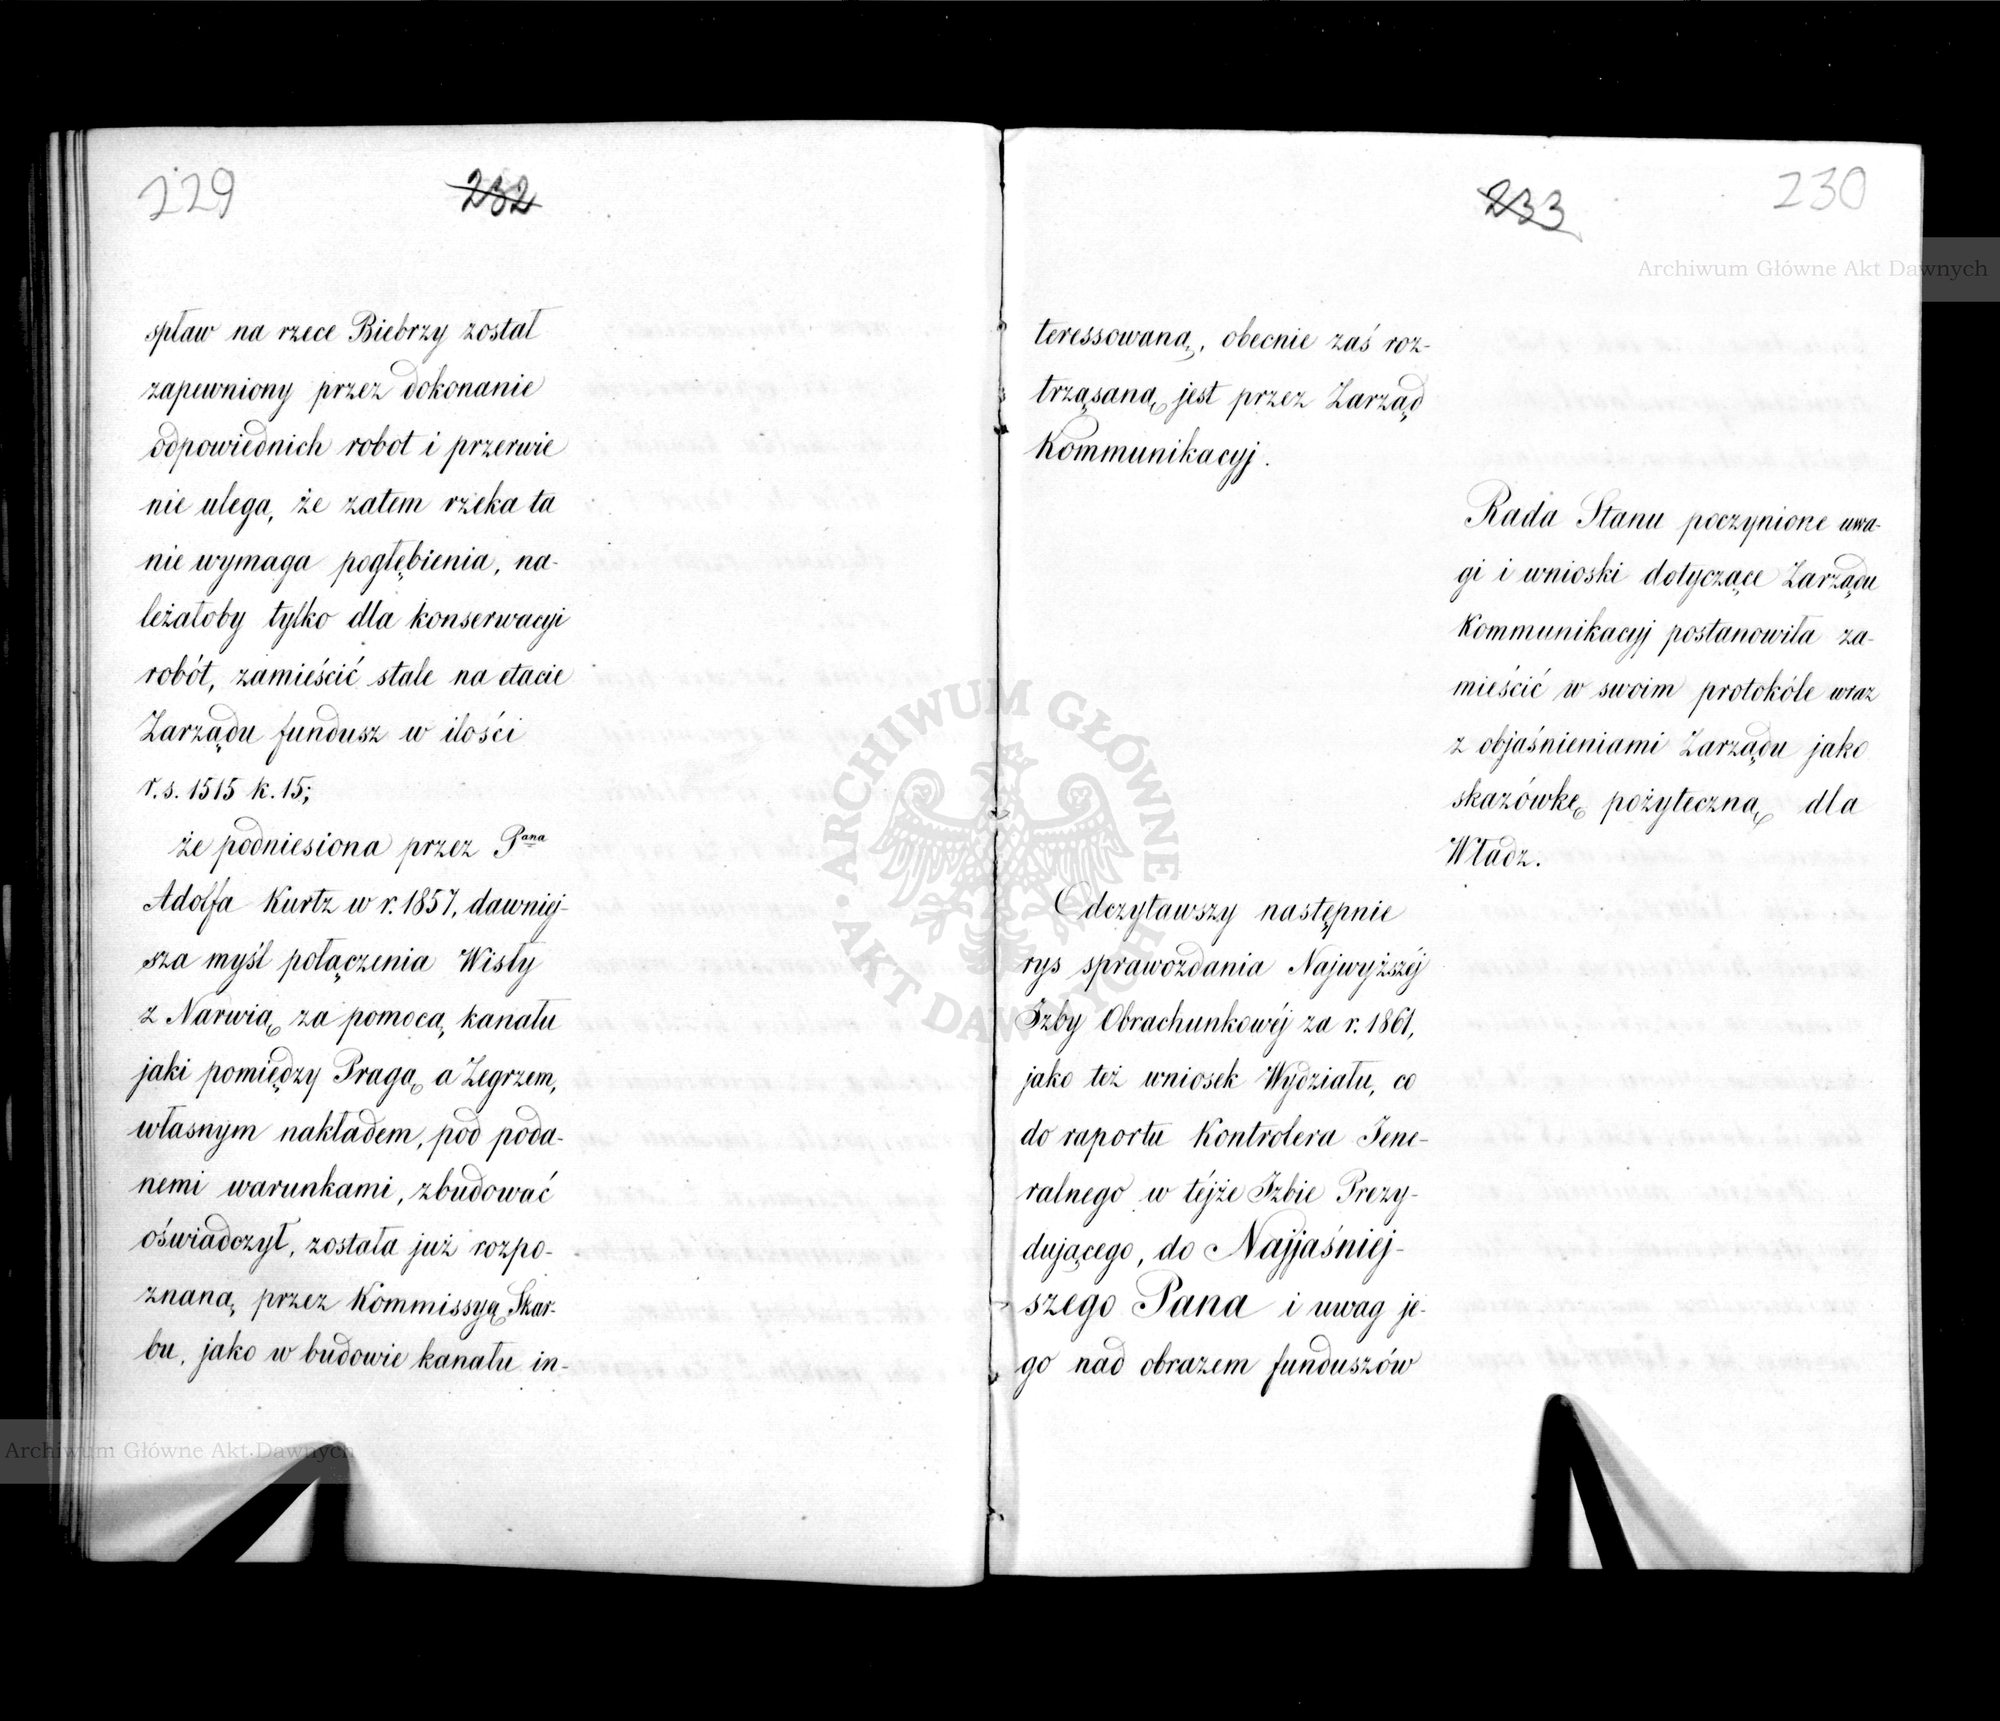 229
232
spław na rzece Biebrzy został
zapewniony przez dokonanie
odpowiednich robot i przerwie
nie ulega, że zatem rzeka ta
nie wymaga pogłębienia, na-
leżałoby tylko dla konserwacyi
robót, zamieścić stale na etacie
Zarządu fundusz w ilości
r.s. 1515 k. 15;
że podniesiona przez Pana
Adolfa Kurtz w r. 1857, dawniej-
sza myśl połączenia Wisły
z Narwią za pomocą kanału
jaki pomiędzy Pragą a Zegrzem,
własnym nakładem, pod poda-
nemi warunkami, zbudować
oświadczył, została już rozpo-
znaną przez Kommissyą Skar-
bu, jako w budowie kanału in-
233
230
Archiwum Główne Akt Dawnych
teressowaną, obecnie zaś roz-
trząsaną jest przez Zarząd
Kommunikacyj.
Rada Stanu poczynione uwa-
gi i wnioski dotyczące Zarządu
Kommunikacyj postanowiła za-
mieścić w swoim protokóle wraz
z objaśnieniami Zarządu jako
skazówkę pożyteczną dla
Władz.
Odczytawszy następnie
rys sprawozdania Najwyższéj
Izby Obrachunkowéj za r. 1861,
jako też wniosek Wydziału, co
do raportu Kontrolera Jene-
ralnego w téjże Izbie Prezy-
dującego, do Najjaśniej-
szego Pana i uwag je-
go nad obrazem funduszów
ARCHIWUM GŁÓWNE
AKT DAWNYCH
Archiwum Główne Akt Dawnych